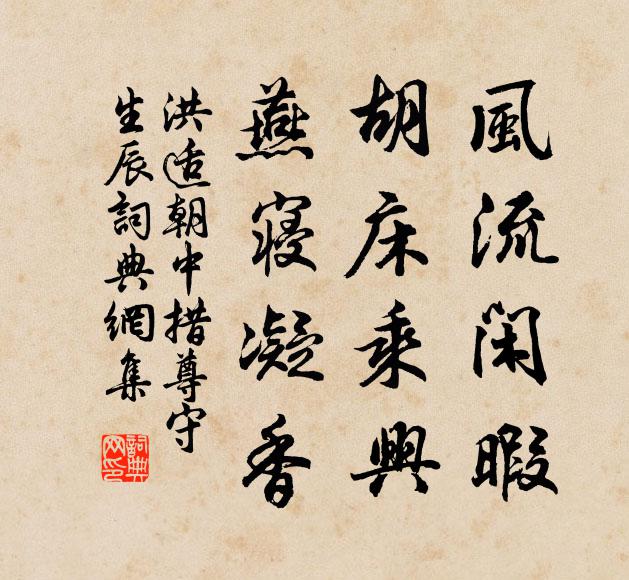 風流閑暇
胡床乘興
燕寝凝香
洪适朝中措尊守
生辰詞典網集
詞典
网印